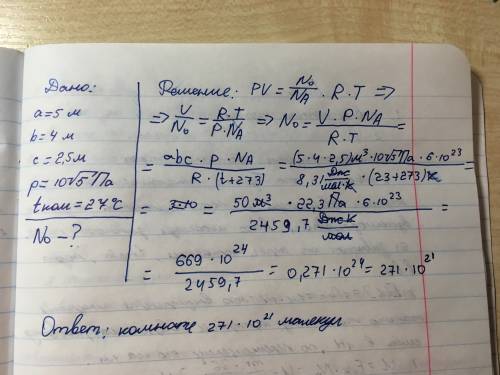 Дано:
a=5 м
b=4 м
c=2,5 м
p=10√5 Па
tком=27°C
N₀ - ?
Решение: PV = N₀/NA · R · T =>
=> V/N₀ = R·T/P·NA => N₀ = V·P·NA/R·T =
= abc · p · NA/R · (t+273) = (5·4·2,5)м³·10√5 Па·6·10²³/8,31 Дж/мол·К · (23+273)К =
= = 50 м³ · 22,3 Па · 6·10²³/2459,7 Дж·К/мол =
= 669 · 10²⁴/2459,7 = 0,271·10²⁴ = 271·10²¹
Ответ: комнате 271·10²¹ малекул